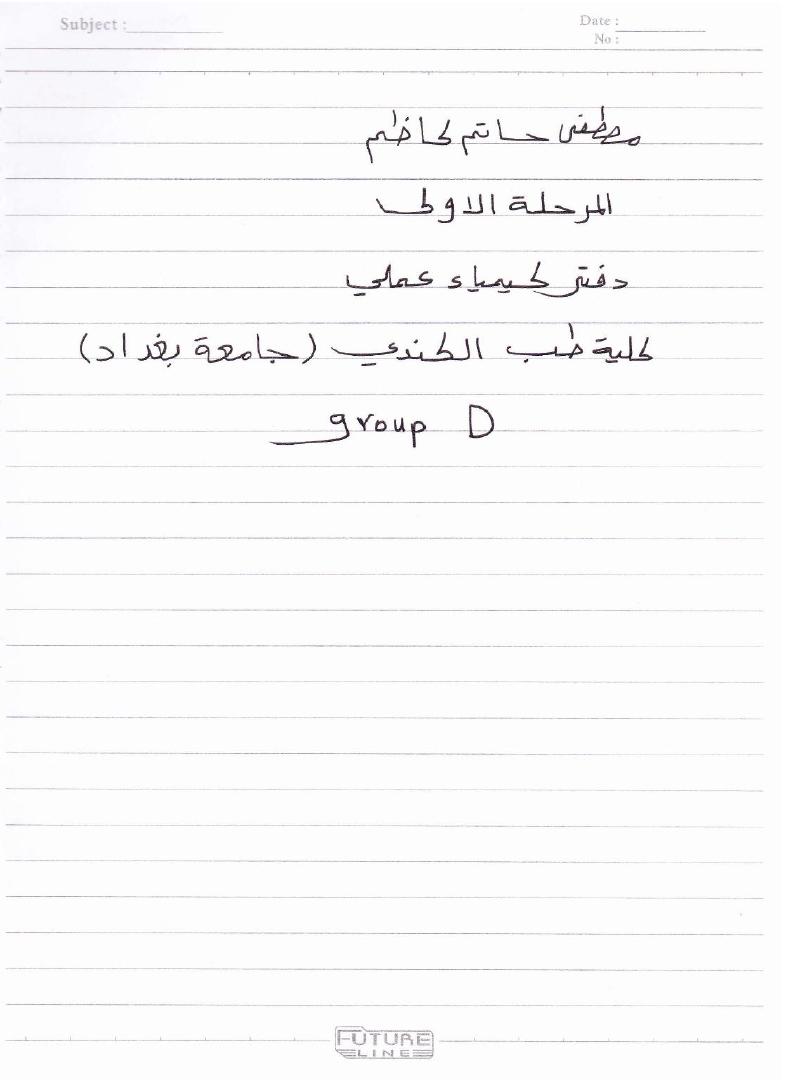 Subject :
Date :
No :
مصطفى حاتم كاظم
المرحلة الاولى
دفتر كيمياء عملي
كلية طب الكندي (جامعة بغداد)
group D
FUTURE
LINE